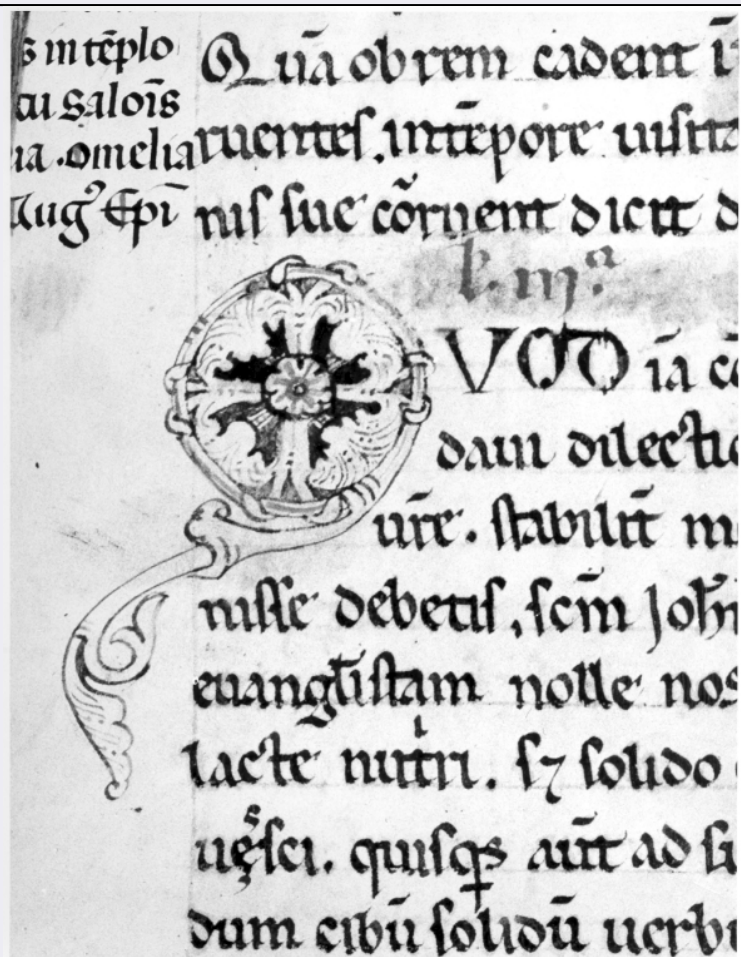 s in tēplo
cu Saloīs
ia . omelia
Aug᾿ Epī
Quā ob rem cadent ī
ruentes. in tēpore uisita
nis sue cōruent dicit d
l. mͣ.
QVOD īa cō
daui dilectio
ūre. stabilit̄ m
nisse debetis, scm̄ Joh̄
euangl̄istam nolle nos
lacte nutri. sꝫ solido
uęsci. quisqꝫ aūt ad si
dum cibū solidū uerbi